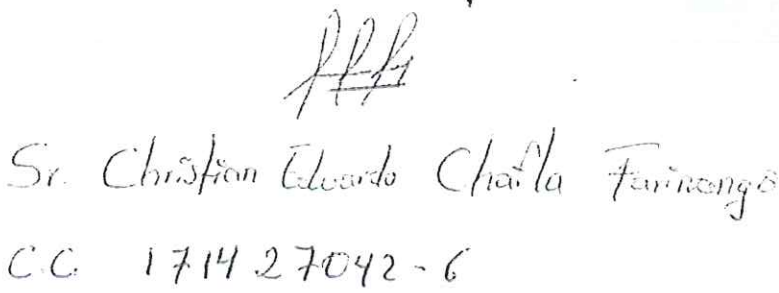 Sr. Christian Eduardo Chaila Farinango
C.C. 171427042-6